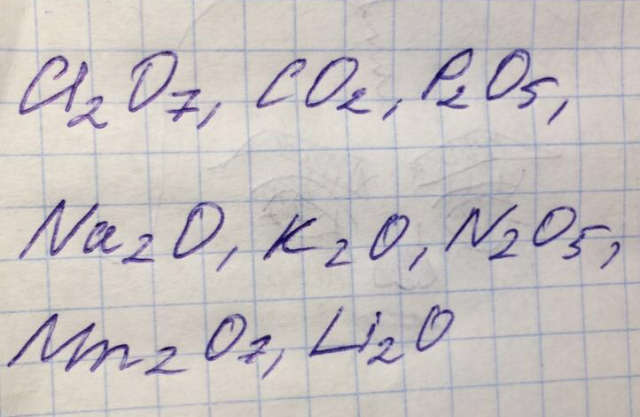 Cl₂O₇, CO₂, P₂O₅,
Na₂O, K₂O, N₂O₅,
Mn₂O₇, Li₂O